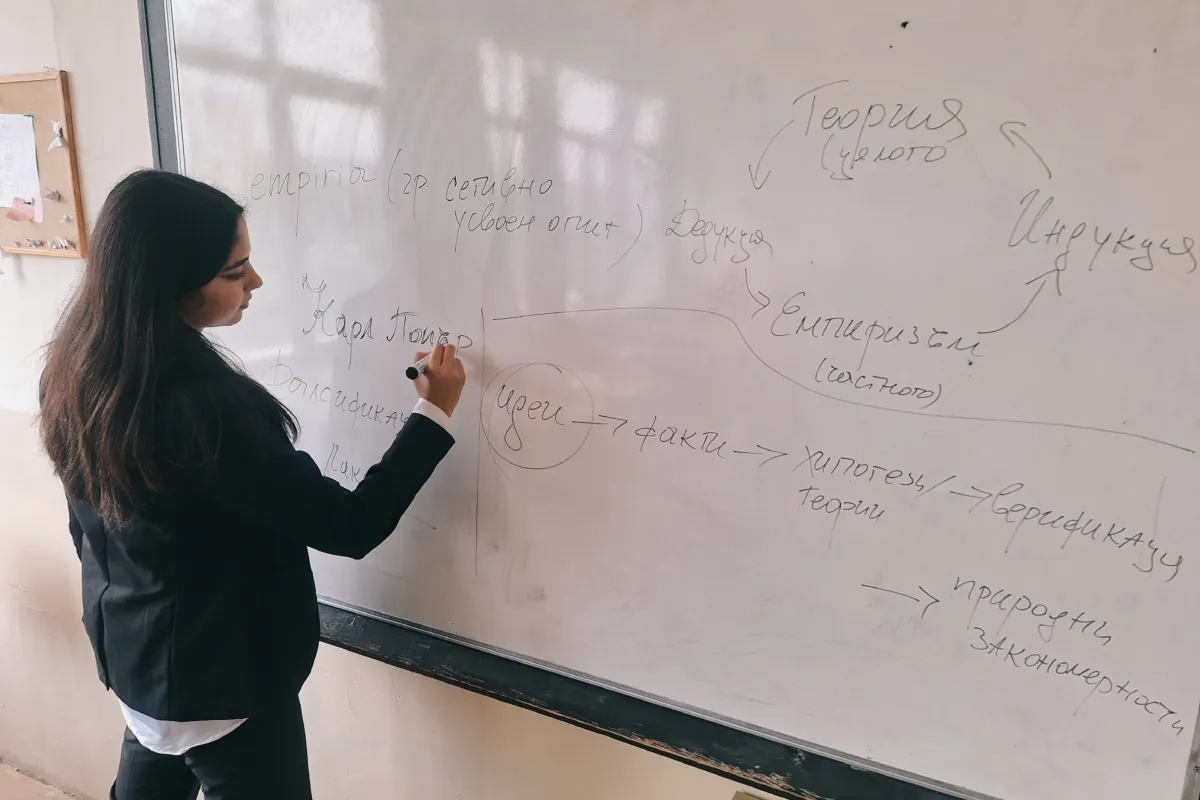 empiria (гр сетивно
усвоен опит)
Теория
(цялото
Дедукция
Индукция
Емпиризъм
(частното)
Карл Попър
идеи → факти → хипотези/ → верификация
теории
→ природни
закономерности